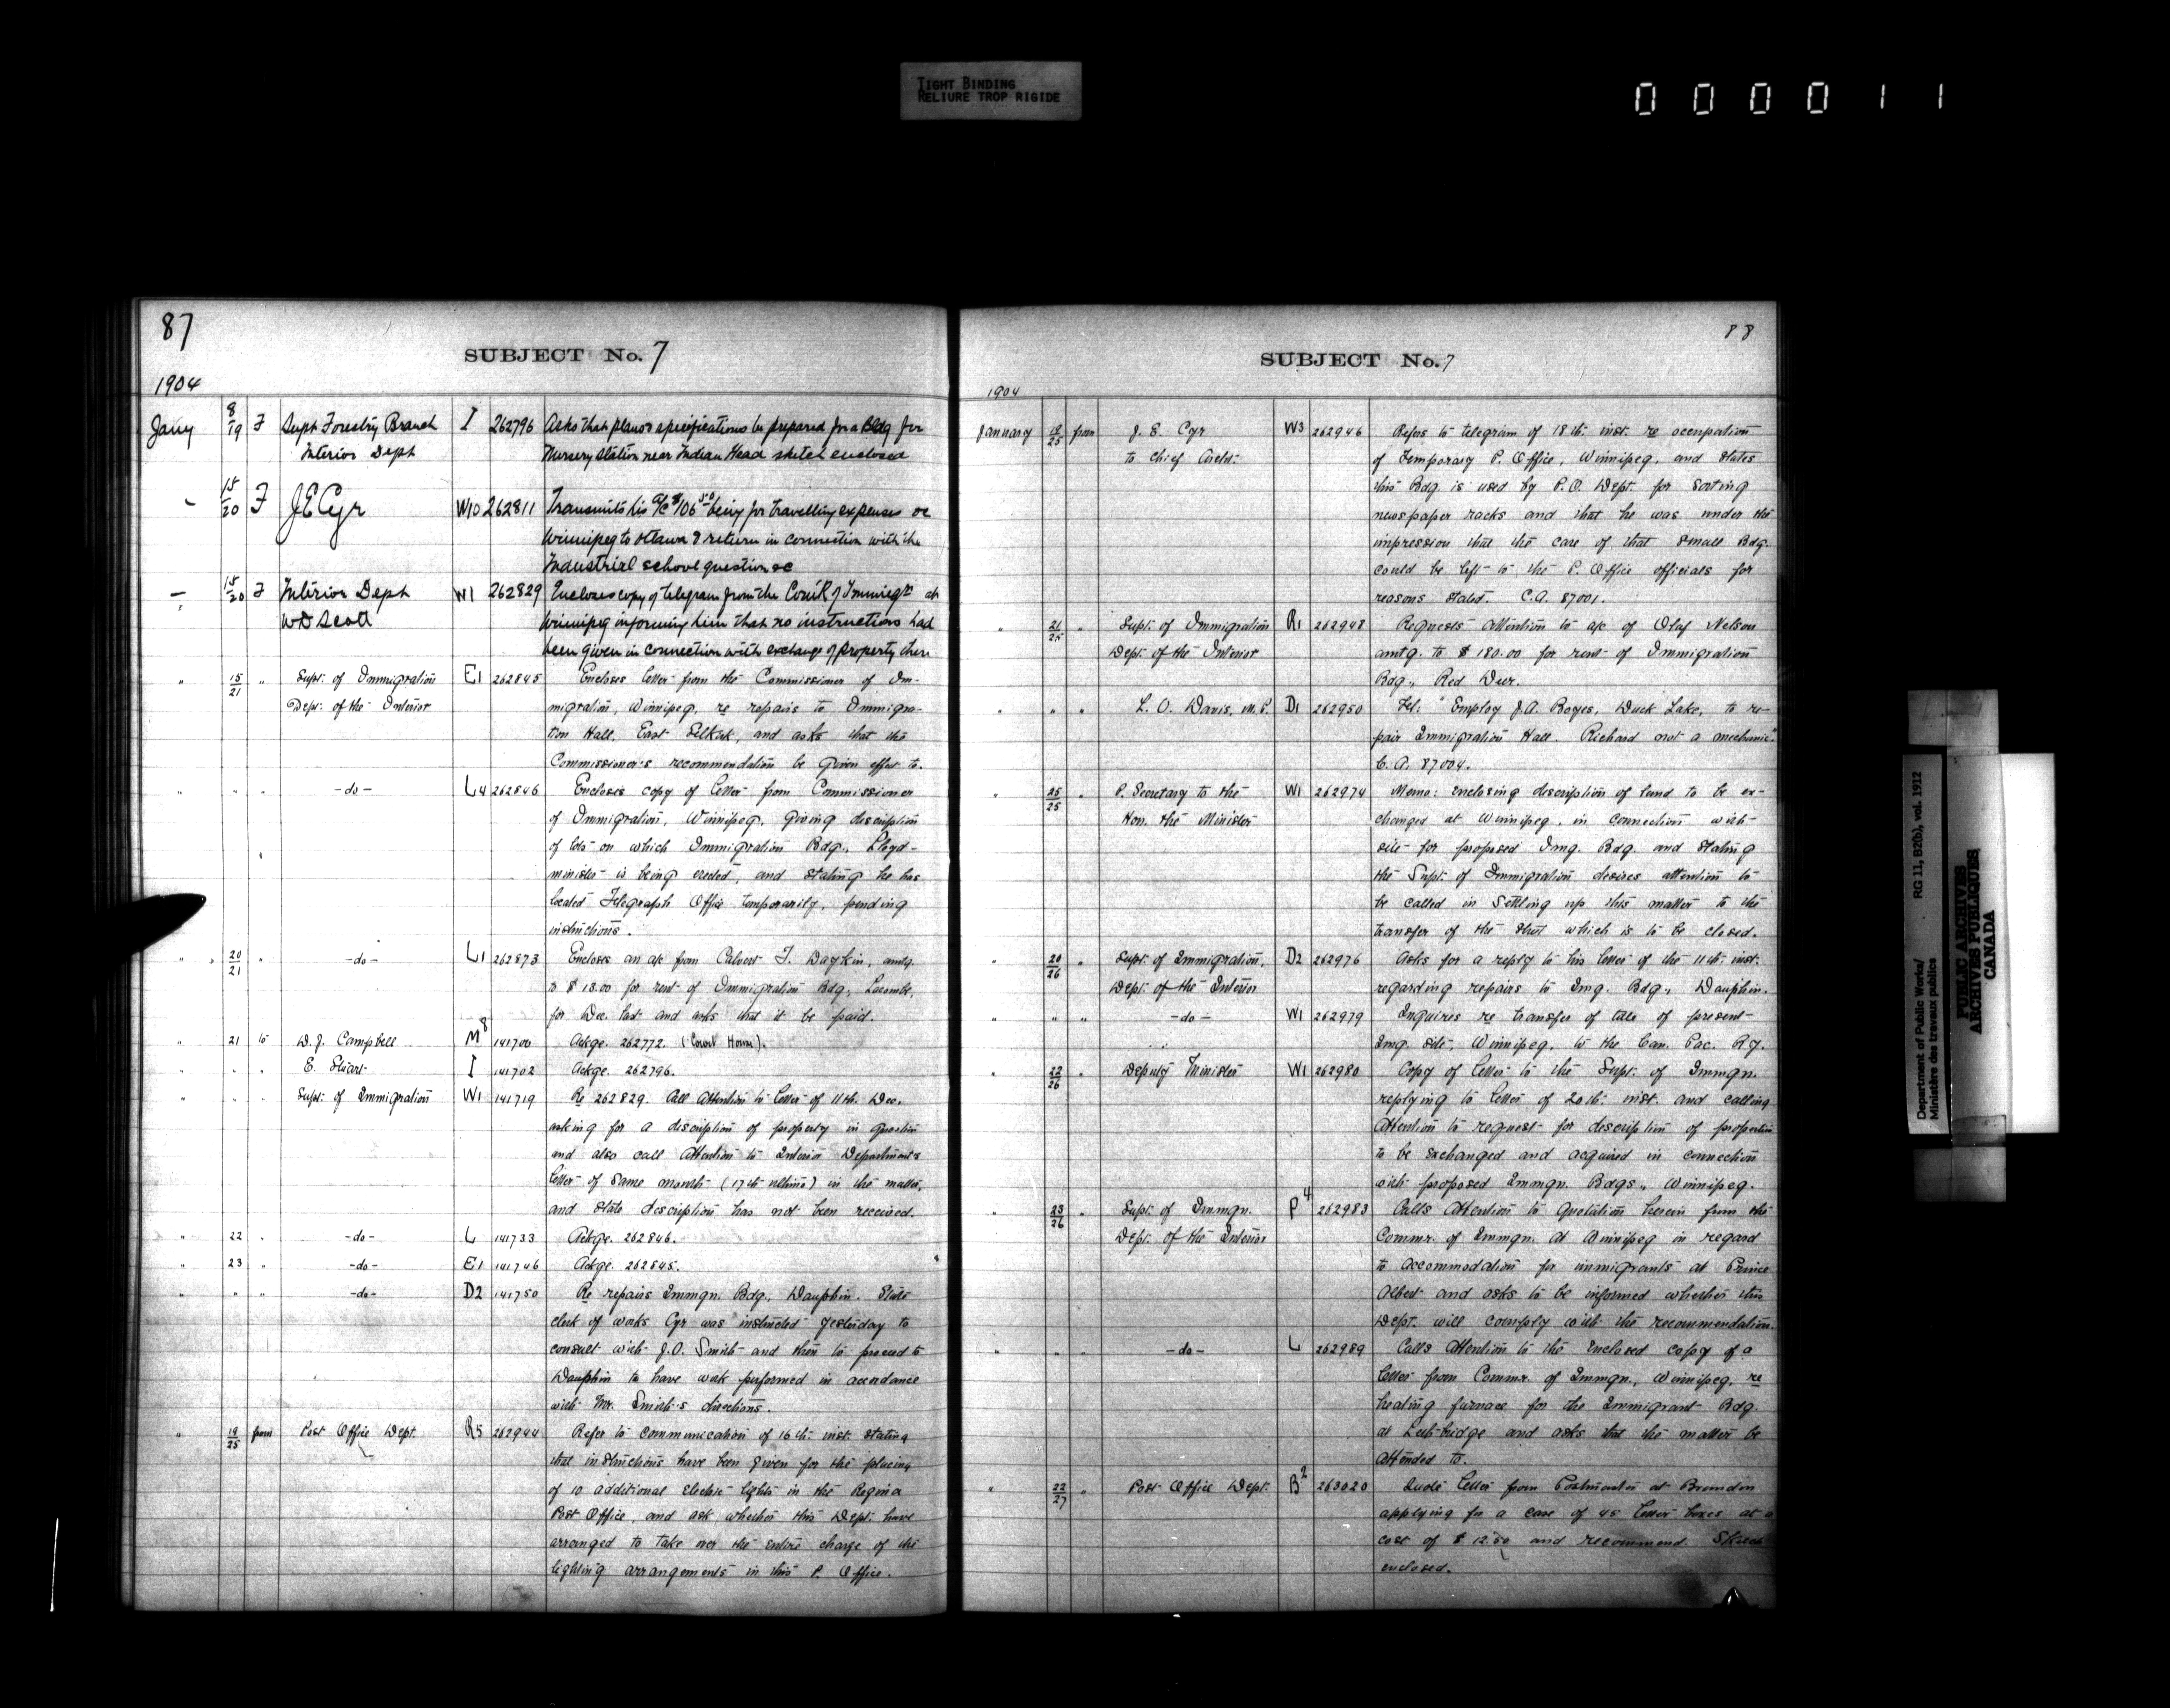 TIGHT BINDING
RELIURE TROP RIGIDE
000011
87
SUBJECT No. 7
1904
Jany 8/19 F Supt Forestry Branch I 262796 Asks that plans & specifications be prepared for a Bldg for
Interior Dept Nursery station near Indian Head sketch enclosed
" 15/20 F J E Cyr W10 262811 Transmits his a/c $106.50 being for travelling expenses
Winnipeg to Ottawa & return in connection with the
Industrial school question &c
" 15/20 F Interior Dept W1 262829 Encloses copy of telegram from the Com'r of Immigrn at
W D Scott Winnipeg informing him that no instructions had
been given in connection with exchange of property there
" 15/21 " Supt. of Immigration E1 262845 Encloses letter from the Commissioner of Im-
Dept. of the Interior migration, Winnipeg, re repairs to Immigra-
tion Hall, East Selkirk, and asks that the
Commissioner's recommendation be given effect to.
" " " -do- L4 262846 Encloses copy of letter from Commissioner
of Immigration, Winnipeg, giving description
of lots on which Immigration Bdg., Lloyd-
minister is being erected, and stating he has
located Telegraph Office temporarily, pending
instructions.
" 20/21 " -do- L1 262873 Encloses an a/c from Calvert T. Daykin, amtg.
to $13.00 for rent of Immigration Bdg., Lacombe,
for Dec. last and asks that it be paid.
" 21 to D. J. Campbell M8 141700 Ackge. 262772. (Court House).
" " " E. Stuart I 141702 Ackge. 262796.
" " " Supt. of Immigration W1 141719 Re 262829. Call attention to letter of 11th. Dec.
asking for a description of property in question
and also call attention to Interior Department's
letter of same month (17th ultimo) in the matter,
and state description has not been received.
" 22 " -do- L 141733 Ackge. 262846.
" 23 " -do- E1 141746 Ackge. 262845.
" " " -do- D2 141750 Re repairs Immgn. Bdg., Dauphin. State
clerk of works Cyr was instructed yesterday to
consult with J.O. Smith and then to proceed to
Dauphin to have work performed in accordance
with Mr. Smith's directions.
" 19/25 from Post Office Dept. R5 262944 Refer to communication of 16th. inst. stating
that instructions have been given for the placing
of 10 additional electric lights in the Regina
Post Office, and ask whether this Dept. have
arranged to take over the entire charge of the
lighting arrangements in this P. Office.
88
SUBJECT No. 7
1904
January 19/25 from J. E. Cyr W3 262946 Refers to telegram of 18th. inst. re occupation
to Chief Archt. of Temporary P. Office, Winnipeg, and states
this Bdg. is used by P.O. Dept. for sorting
newspaper racks and that he was under the
impression that the care of that small Bdg.
could be left to the P. Office officials for
reasons stated. C.A. 87001.
" 21/25 " Supt. of Immigration R1 262948 Requests attention to a/c of Olaf Nelson
Dept. of the Interior amtg. to $180.00 for rent of Immigration
Bdg., Red Deer.
" " " L. O. Davis, M.P. D1 262950 Tel: "Employ J.A. Boyes, Duck Lake, to re-
pair Immigration Hall. Richard not a mechanic."
C. A. 87004.
" 25/25 " P. Secretary to the W1 262974 Memo: enclosing description of land to be ex-
Hon. the Minister changed at Winnipeg, in connection with
site for proposed Img. Bdg. and stating
the Supt. of Immigration desires attention to
be called in settling up this matter to the
transfer of the street which is to be closed.
" 20/26 " Supt. of Immigration, D2 262976 Asks for a reply to his letter of the 11th. inst.
Dept. of the Interior regarding repairs to Img. Bdg., Dauphin.
" " " -do- W1 262979 Inquires re transfer of title of present
Img. site, Winnipeg, to the Can. Pac. Ry.
" 22/26 Deputy Minister W1 262980 Copy of letter to the Supt. of Immgn.
replying to letter of 20th. inst. and calling
attention to request for description of properties
to be exchanged and acquired in connection
with proposed Immgn. Bdgs., Winnipeg.
" 23/26 " Supt. of Immgn. P4 262983 Calls attention to quotation herein from the
Dept. of the Interior Commr. of Immgn. at Winnipeg in regard
to accommodation for immigrants at Prince
Albert and asks to be informed whether this
Dept. will comply with the recommendation.
" " " -do- L 262989 Calls attention to the enclosed copy of a
letter from Commr. of Immgn., Winnipeg, re
heating furnace for the Immigrant Bdg.
at Lethbridge and asks that the matter be
attended to.
" 22/27 " Post Office Dept. B2 263020 Quote letter from Postmaster at Brandon
applying for a case of 45 letter boxes at a
cost of $12.50 and recommend. Sketch
enclosed.
Department of Public Works/ RG 11, B2(b), vol. 1912
Ministère des travaux publics
PUBLIC ARCHIVES
ARCHIVES PUBLIQUES
CANADA